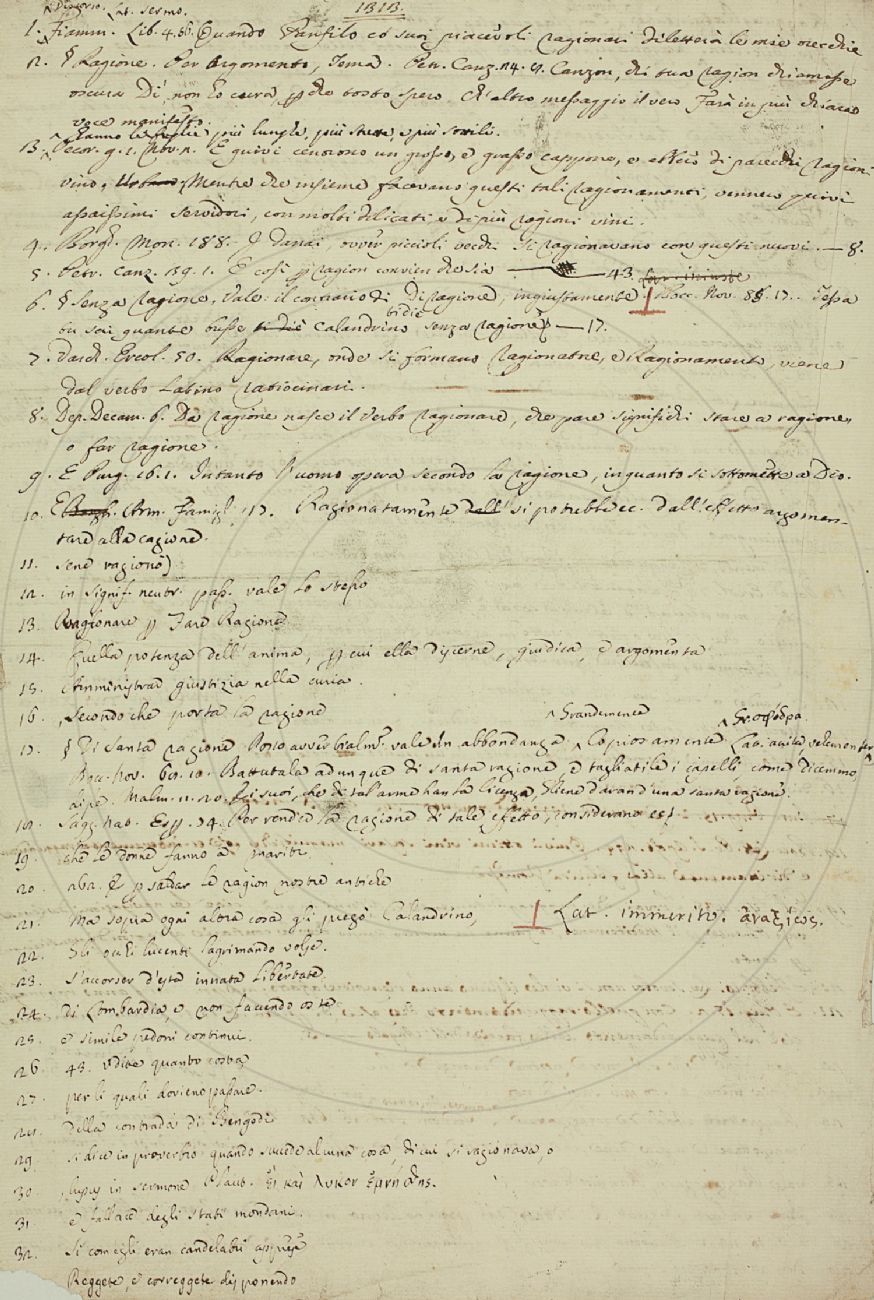 ^ Discorso. Lat. sermo. 1313.
1. Fiamm. Lib. 4. 56. Quando Panfilo co' suoi piacevoli ragionari diletterà le mie orecchie
2. § Ragione. Per Argomento, Tema. Petr. Canz. 24. 7. Canzon, chi tua ragion chiamasse
oscura Dì, non ho cura, pche tosto spero, Ch'altro messaggio il vero Farà in più chiara
voce manifesto.
^ Fanno le foglie più lunghe, più strette, e più sottili.
3. ^ Pecor. g. 1. nov. 2. E quivi cenorono un grosso, e grasso cappone, e ebbero di parecchi ragioni
vino, Urbano, Mentre che insieme facevano questi tali ragionamenti, vennero quivi
assaissimi servidori, con molti dilicati, e di più ragioni vini.
4. Borgh. Mon. 188. I danai, ovver piccioli vecchi si ragionavano con questi nuovi. — 8.
5. Petr. canz. 39. 1. E così p ragion convien che sia — 43.
6. § Senza ragione, Vale il contrario di Di ragione, ingiustamente Bocc. Nov. 86. 17. Tessa
tu sai quante busse ti diè Calandrino senza ragione — 17.
7. Varch. Ercol. 50. Ragionare, onde si formano ragionatore, e Ragionamento, viene
dal verbo Latino ratiocinari.
8. Dep. Decam. 6. Da ragione nasce il verbo ragionare, che pare significhi stare a ragione,
o far ragione.
9. E Purg. 16. 1. Intanto l'uomo opera secondo la ragione, inquanto si sottomette a Dio.
10. Arm. Famigl. 17. Ragionatamente dall' si potrebbe ec. dall'effetto argomen-
tare alla cagione.
11. sene ragionò)
12. in signif. neutr. pass. vale lo stesso
13. Ragionare p Fare Ragione
14. Quella potenza dell'anima, p cui ella discerne, giudica, e argomenta
15. Amministrar giustizia nella curia.
16. Secondo che porta la ragione
^ Grandemente ^ Gr. σφόδρα
17. § Di Santa ragione Posto avverbialm. vale In abbondanza ^ Copiosamente Lat. ^ velementer
Bocc. nov. 69. 10. Battutala adunque di santa ragione e tagliatile i capelli, come dicemmo
Malm. 11. 20. tal'arme han la licenza, Gliene daran d'una santa ragione.
18. Sagg. nat. Esp. 74. Per render la ragione di tale effetto, consideravano es.
19. che le donne fanno a' mariti.
20. p saldar le ragion nostre antiche
21. Ma sopra ogni altra cosa gli pregò Calandrino, Lat. immerito. ἀναξίως.
22. Gli occhi lucenti lagrimando volse.
23. S'accorser d'esta innata libertate
24. Di Lombardia, e non facendo oste
25. e simile pedoni continui.
26 43. vedite quanto costa
27. per li quali dovieno passare.
28. della contrada di Bengodi
29. si dice in proverbio quando succede alcuna cosa, di cui si ragionava, o
30. lupus in sermone Plaut. εἰ καὶ λύκου ἐμνήσθης.
31. è fallace degli stati mondani.
32. Si com egli eran candelabri apparse
Reggete, e correggete disponendo